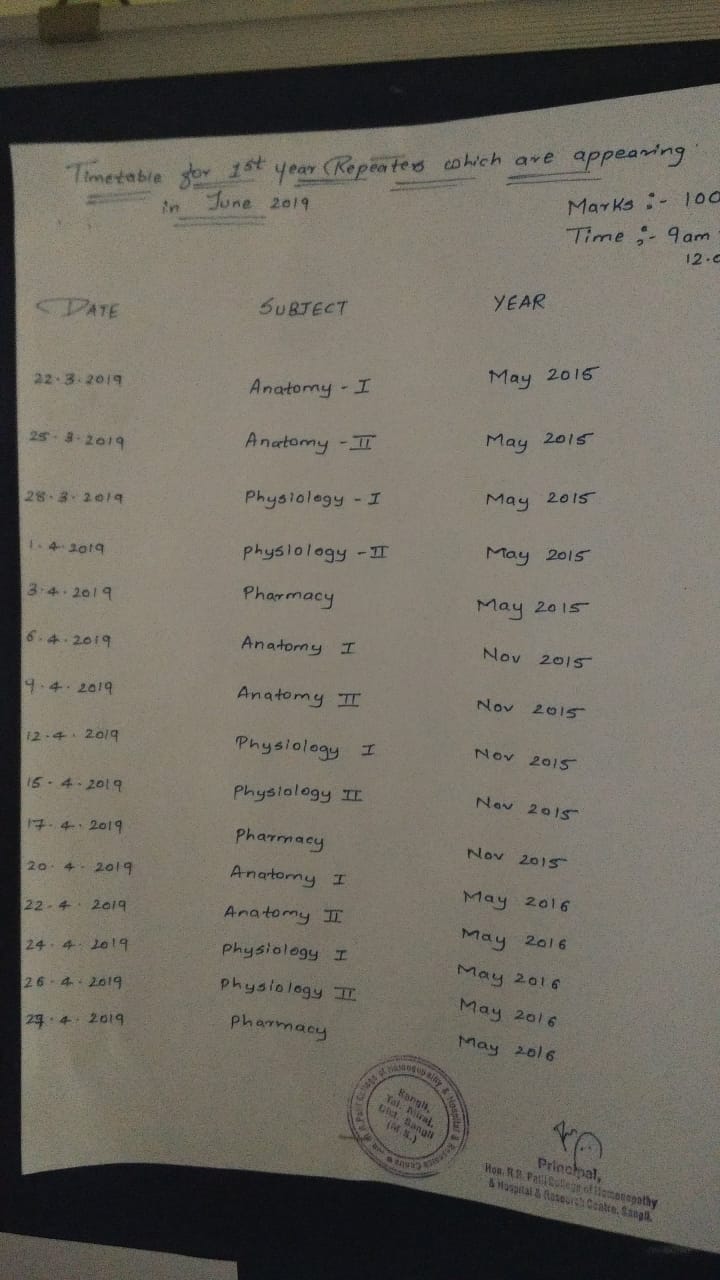 Timetable for 1st year Repeaters which are appearing
in June 2019
Marks :- 100
Time :- 9am
DATE SUBJECT YEAR
22.3.2019 Anatomy - I May 2015
25.3.2019 Anatomy - II May 2015
28.3.2019 Physiology - I May 2015
1.4.2019 physiology - II May 2015
3.4.2019 Pharmacy May 2015
6.4.2019 Anatomy I Nov 2015
9.4.2019 Anatomy II Nov 2015
12.4.2019 Physiology I Nov 2015
15.4.2019 Physiology II Nov 2015
17.4.2019 Pharmacy Nov 2015
20.4.2019 Anatomy I May 2016
22.4.2019 Anatomy II May 2016
24.4.2019 Physiology I May 2016
26.4.2019 Physiology II May 2016
4.2019 Pharmacy May 2016
Patil College of Homoeopathy & Hospital & Research Centre
Sangli,
Tal. Miraj,
Dist. Sangli
(M.S.)
Principal,
Hon. R.R. Patil College of Homoeopathy
& Hospital & Research Centre, Sangli.